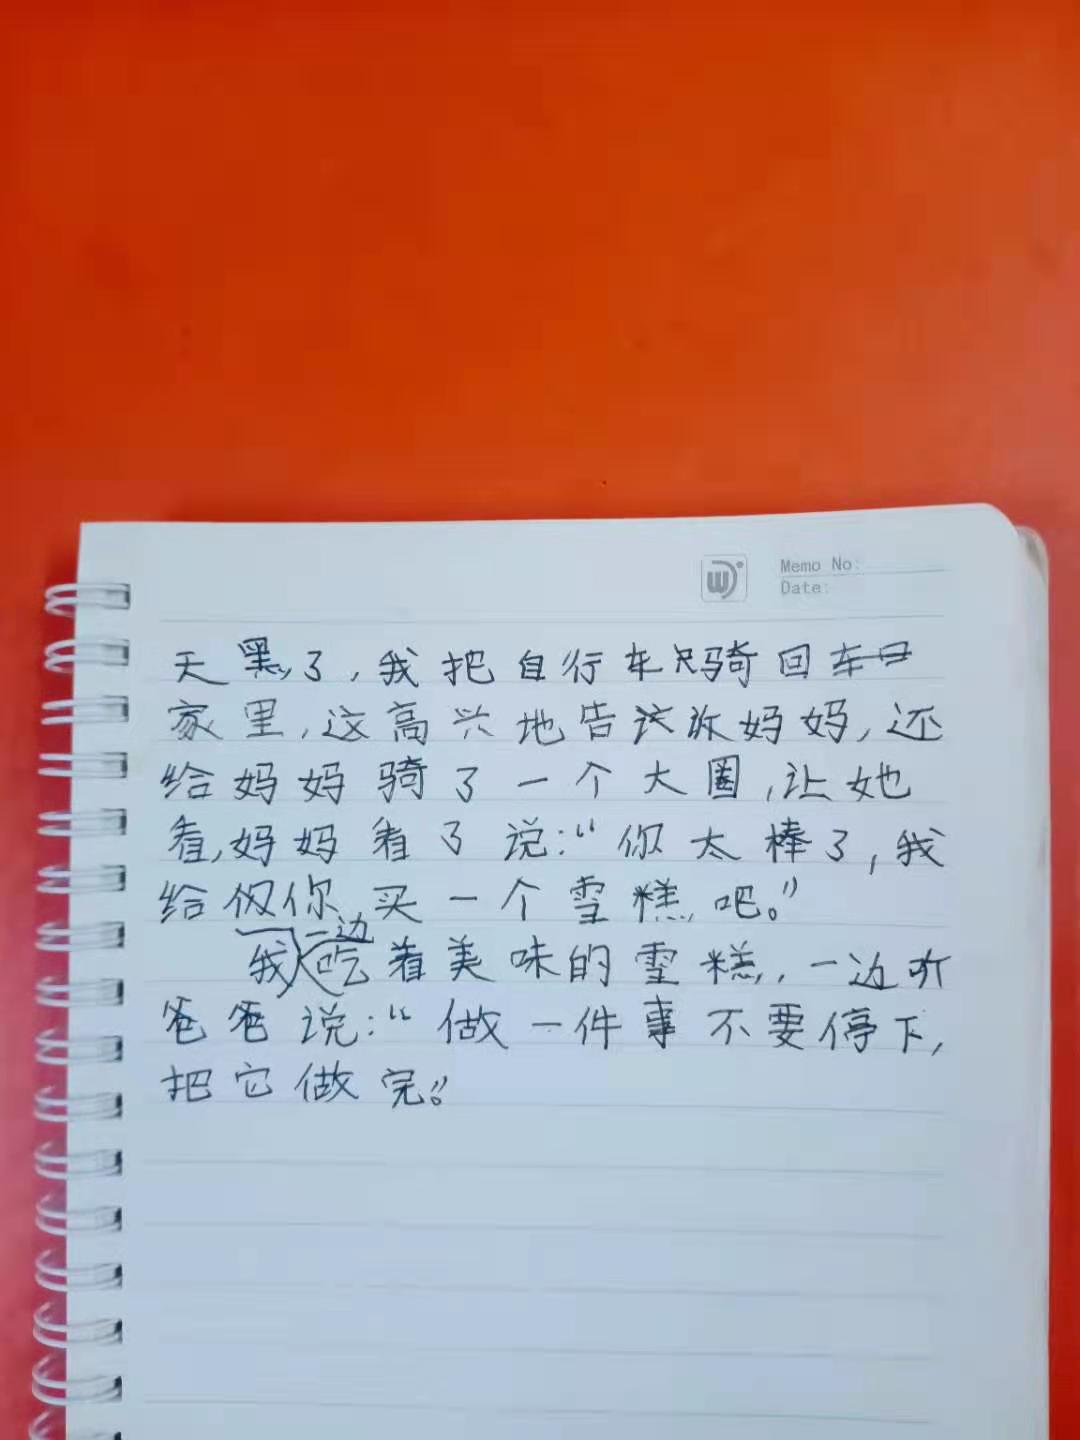 Memo No:
Date:
天黑了,我把自行车骑回
家里,这高兴地告诉妈妈,还
给妈妈骑了一个大圈,让她
看,妈妈看了说:“你太棒了,我
给你买一个雪糕吧。”
我一边吃着美味的雪糕,一边听
爸爸说:“做一件事不要停下,
把它做完。”